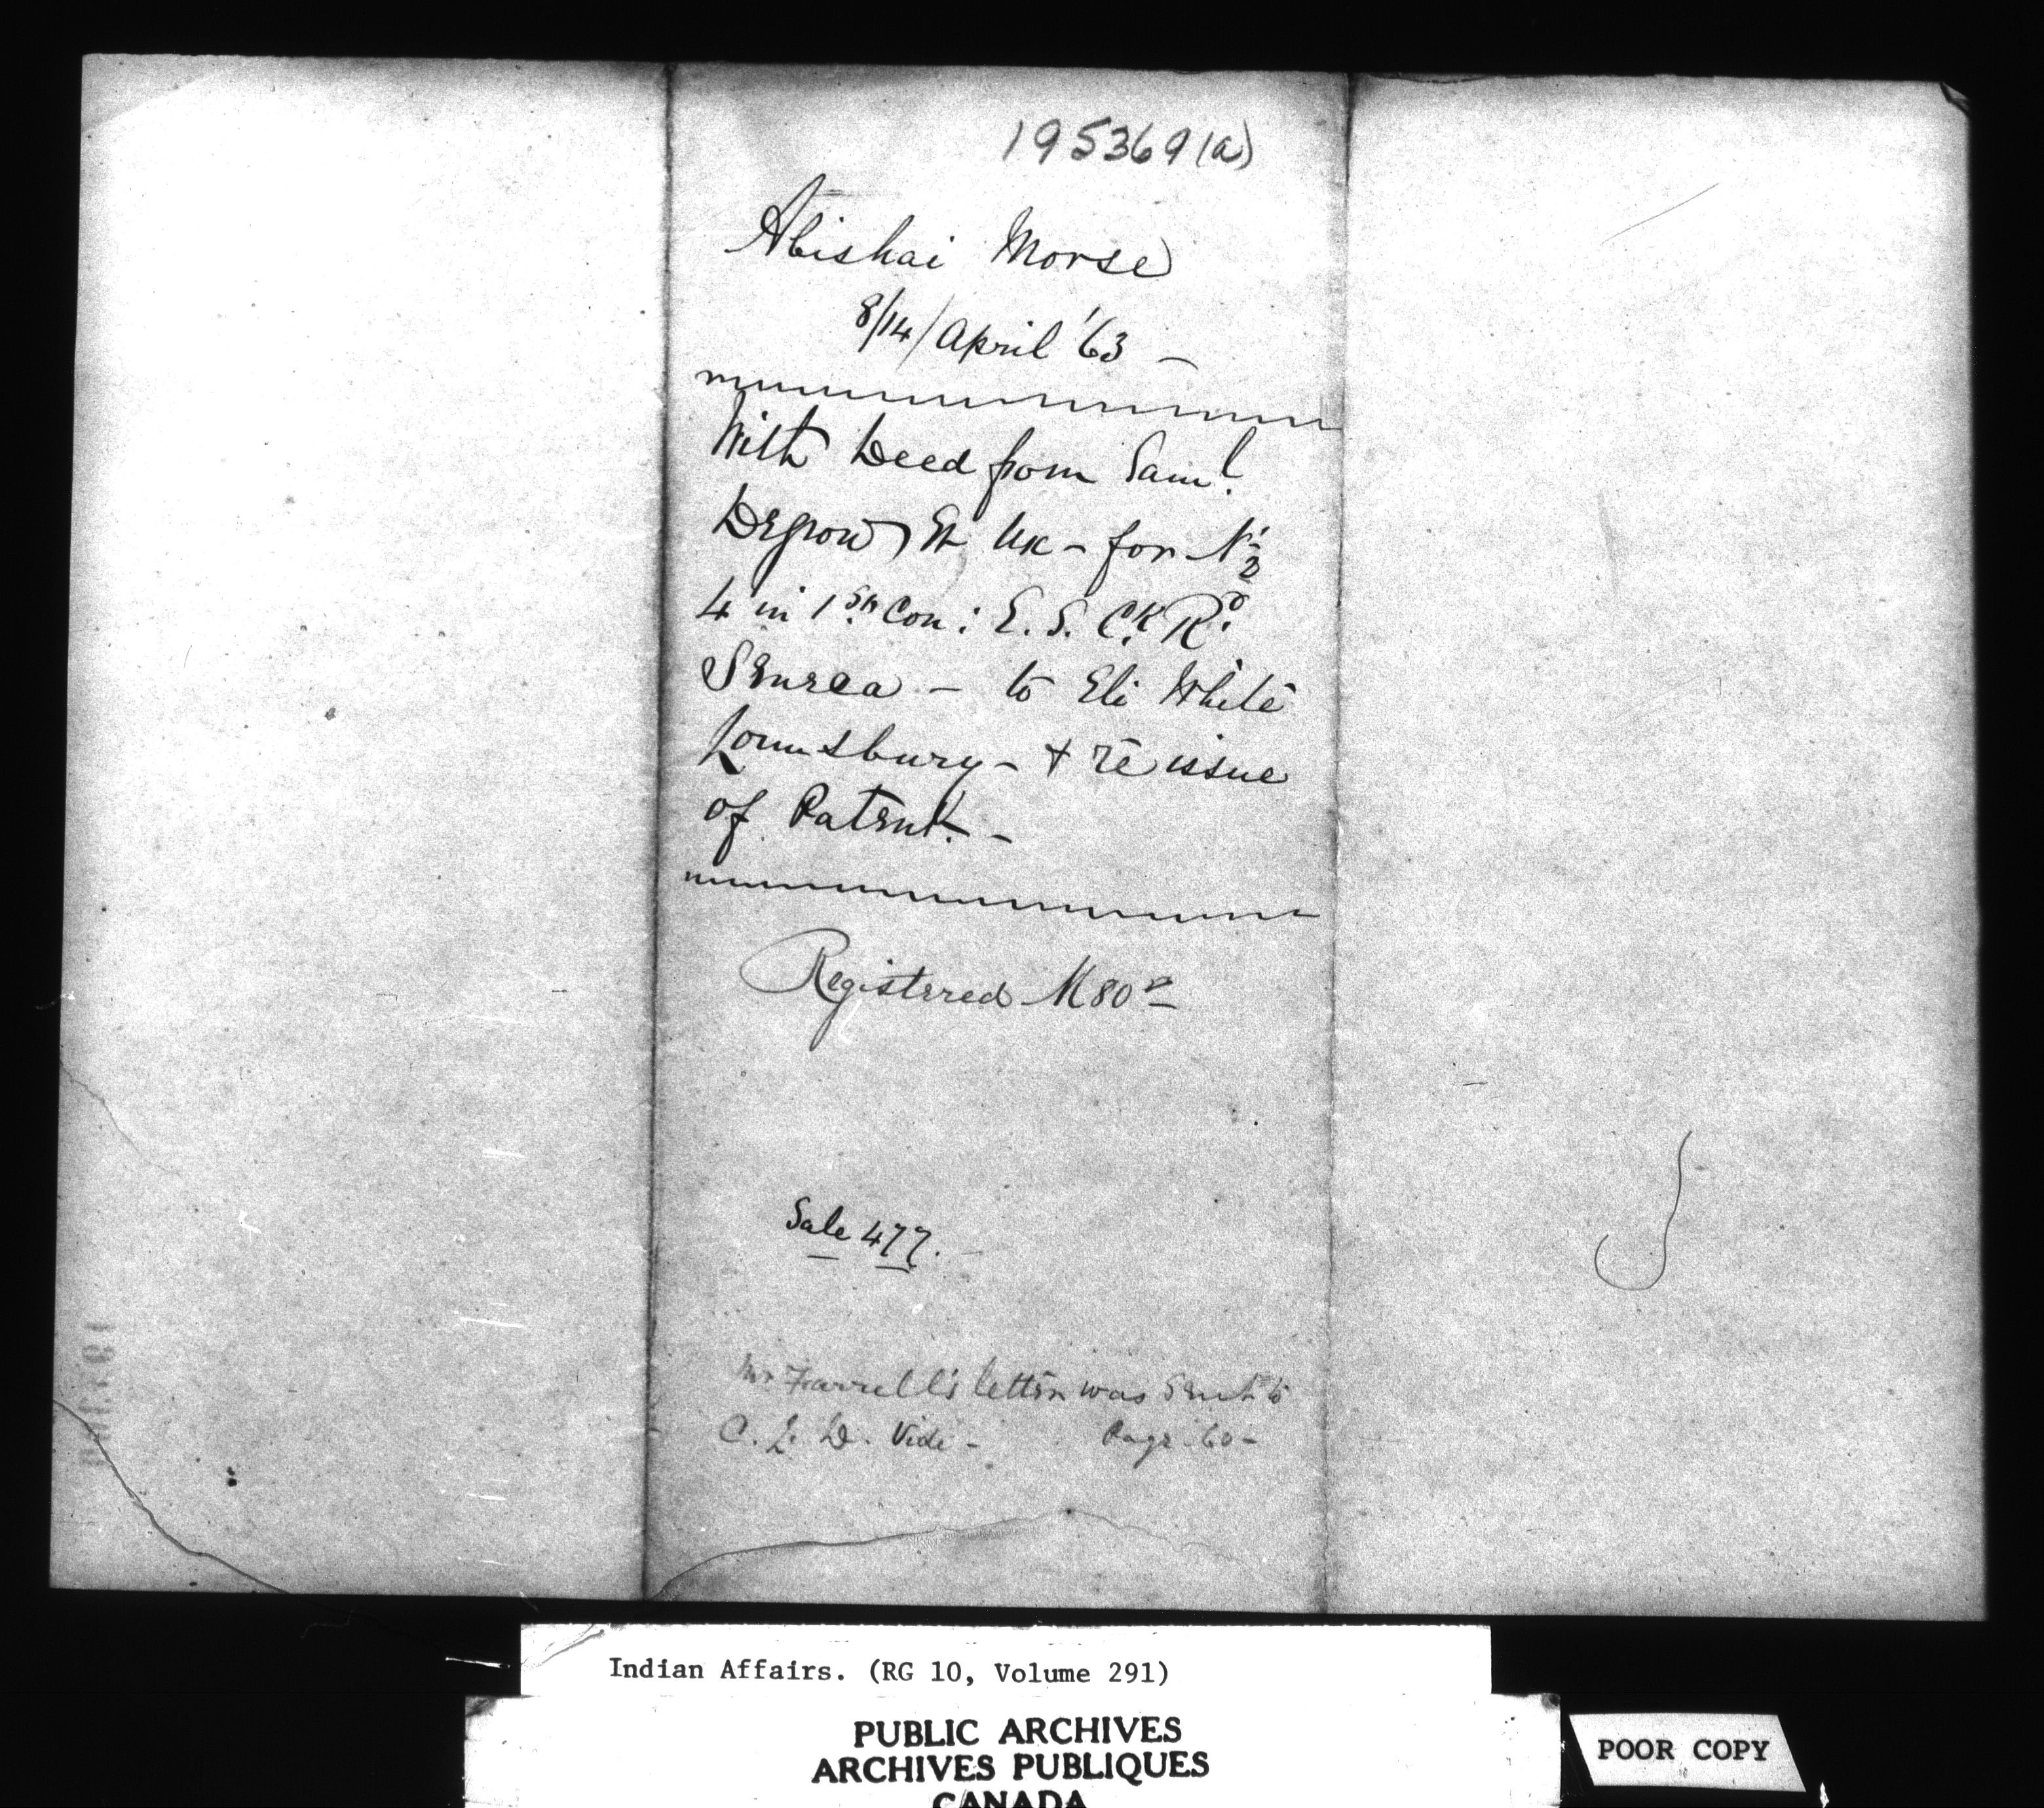 195369(a)
Abishai Morse
8/14/April '63 –
With Deed from Saml.
Degrow Et Ux – for N ½
4 in 1st. Con: E. S. Ck. Rd.
Seneca – to Eli White
Lounsbury – + re issue
of Patent. –
Registered M 80
Sale 477.
Mr Farrell's letter was sent to
C. L. D. Vide – Page 60 –
Indian Affairs. (RG 10, Volume 291)
PUBLIC ARCHIVES
ARCHIVES PUBLIQUES
CANADA
POOR COPY